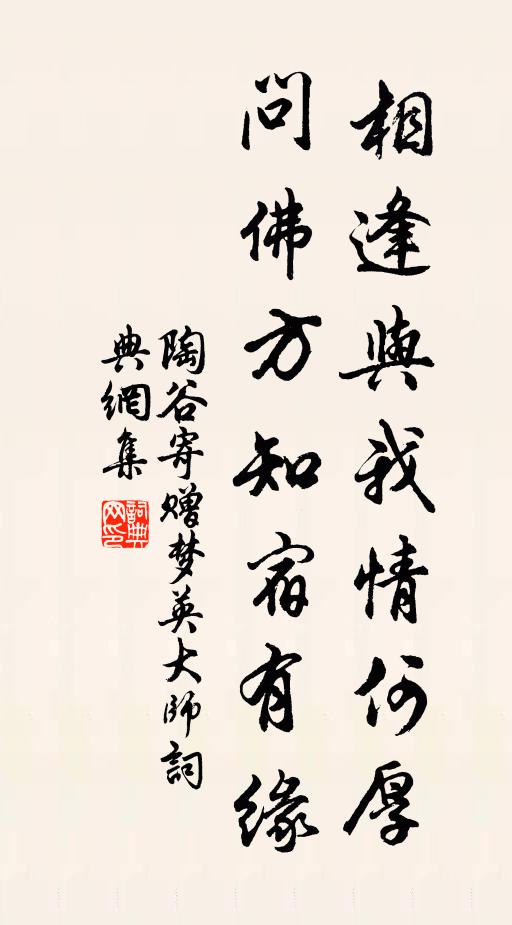 相逢與我情何厚
問佛方知宿有緣
陶谷寄赠梦英大師詞
典網集
詞典
网印